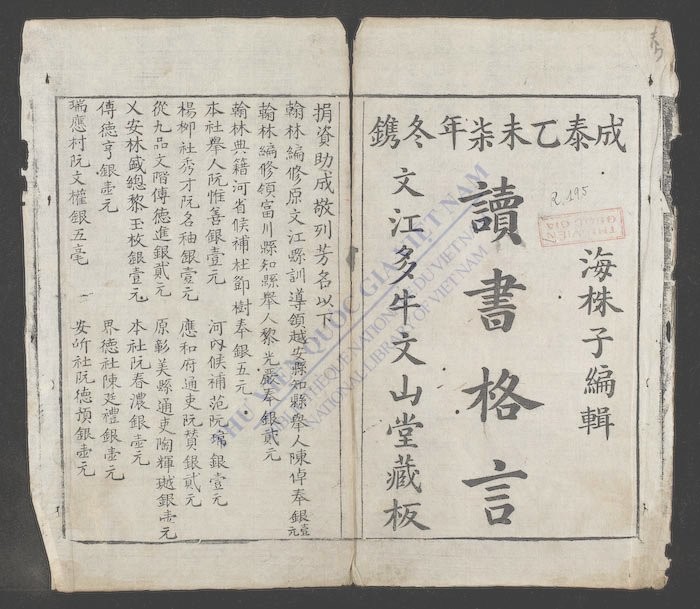 成泰乙未柒年冬鐫
海株子編輯
讀書格言
文江多牛文山堂藏板
捐資助成敬列芳名以下
翰林編修原文江縣訓導領越安縣知縣舉人陳倬奉銀壹元
翰林編修領富川縣知縣舉人黎光嚴奉銀貳元
翰林典籍河省候補杜節樹奉銀五元
本社舉人阮惟善銀壹元 河內候補范阮 銀壹元
楊柳社秀才阮名袖銀壹元 應和府通吏阮贊銀貳元
從九品文階傅德進銀貳元 原彰美縣通吏陶輝 銀壹元
乂安林盛總黎玉枚銀壹元 本社阮春濃銀壹元
傅德亨銀壹元 界德社陳廷禮銀壹元
瑞應村阮文權銀五毫 安所社阮德 銀壹元
R.195
THƯ VIỆN QUỐC GIA
THƯ VIỆN QUỐC GIA VIỆT NAM
BIBLIOTHÈQUE NATIONALE DU VIETNAM
NATIONAL LIBRARY OF VIETNAM